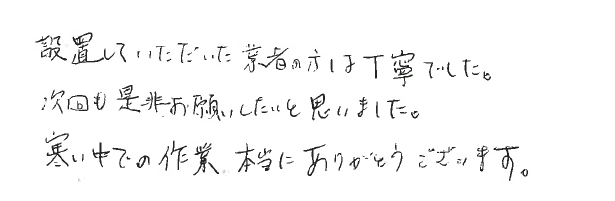 設置していただいた業者の方は丁寧でした。
次回も是非お願いしたいと思いました。
寒い中での作業、本当にありがとうございます。